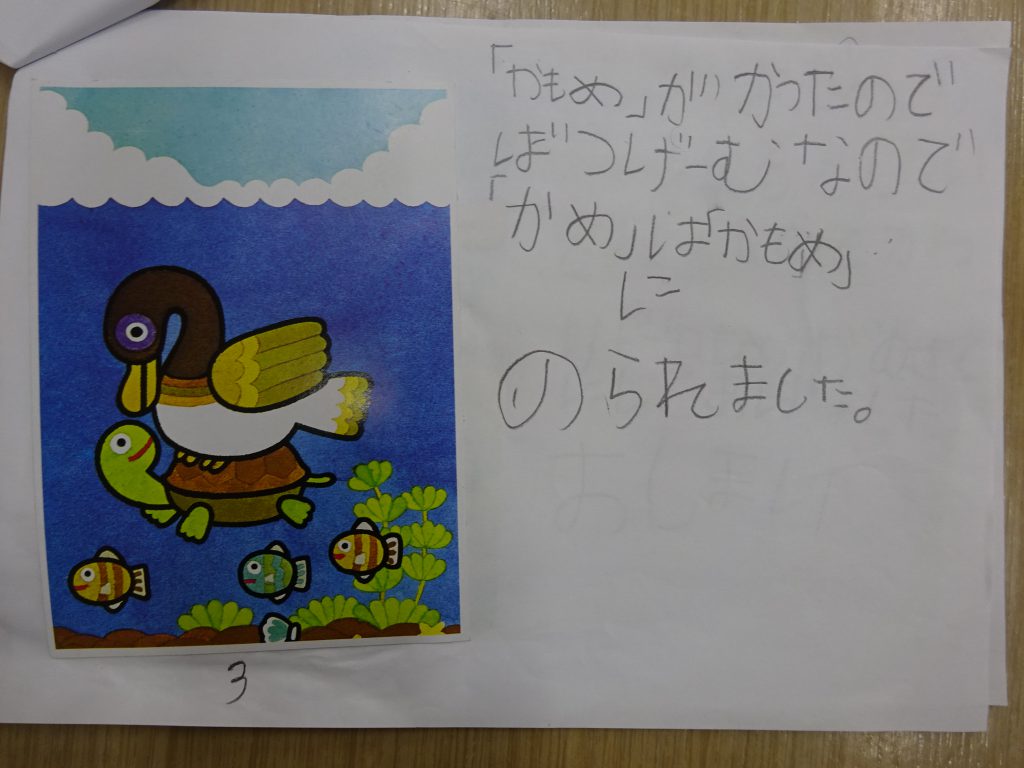 「かもめ」がかったので
ばつげーむなので
「かめ」は「かもめ」
に
のられました。
3